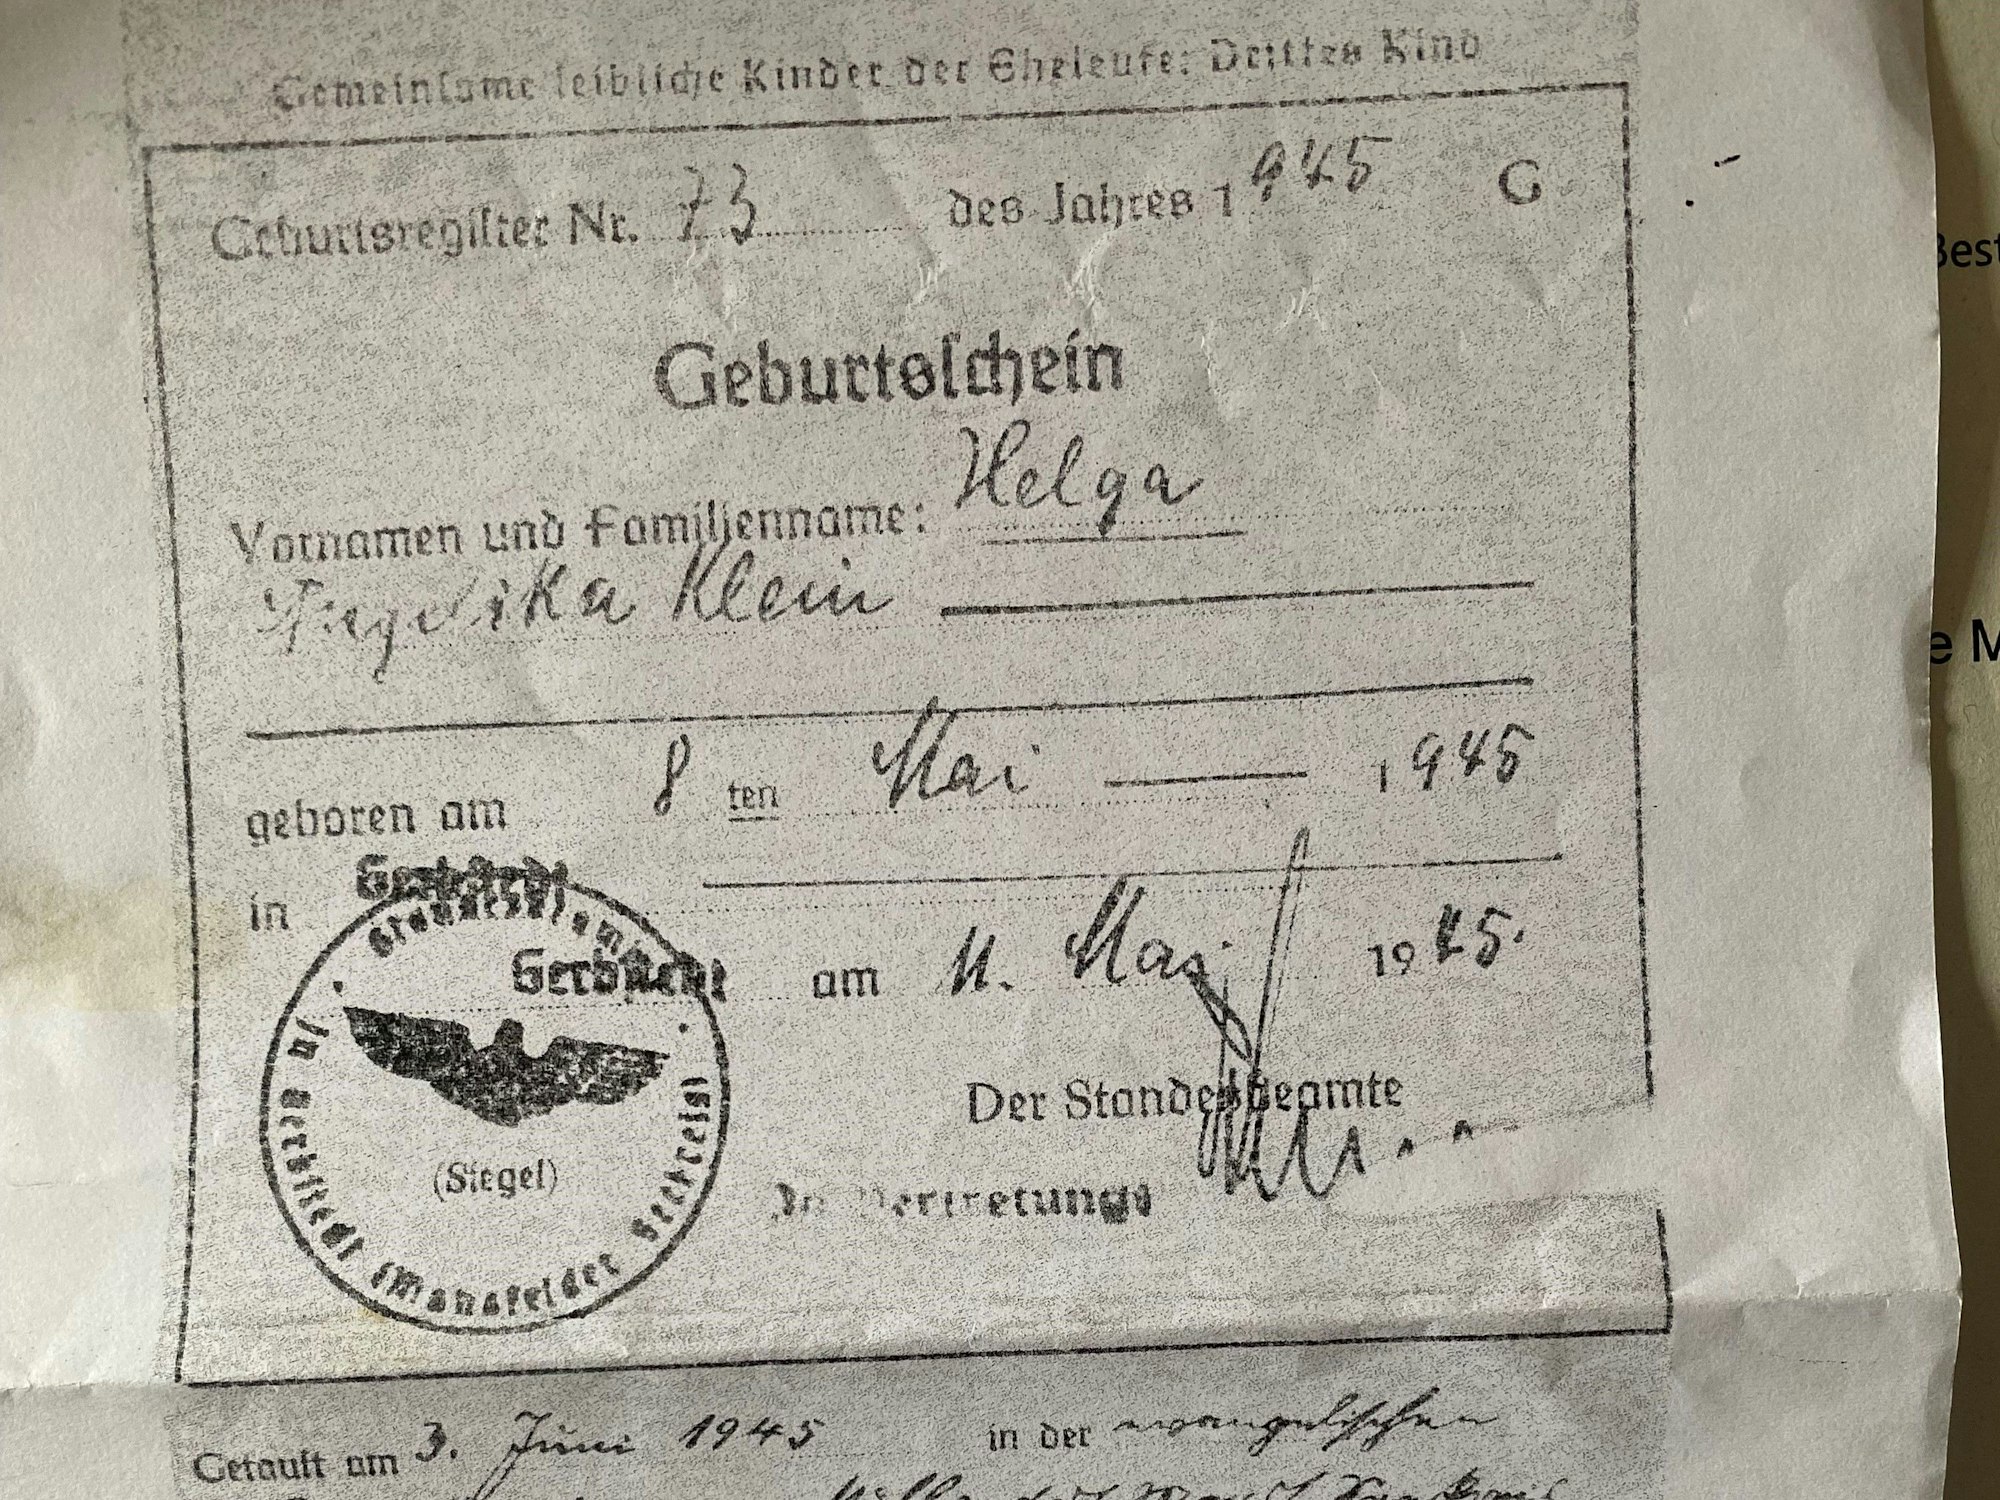 Gemeinsame leibliche Kinder der Eheleute: Drittes Kind
Geburtsregister Nr. 73 des Jahres 1945 G
Geburtsschein
Vornamen und Familienname: Helga
Angelika Klein
geboren am 8 ten Mai 1945
in Gerbstedt
Gerbstedt am 11. Mai 1945.
Der Standesbeamte
In Vertretung:
Standesamt
in Gerbstedt (Mansfelder Seekreis)
(Siegel)
Getauft am 3. Juni 1945 in der evangelischen
Best
e M